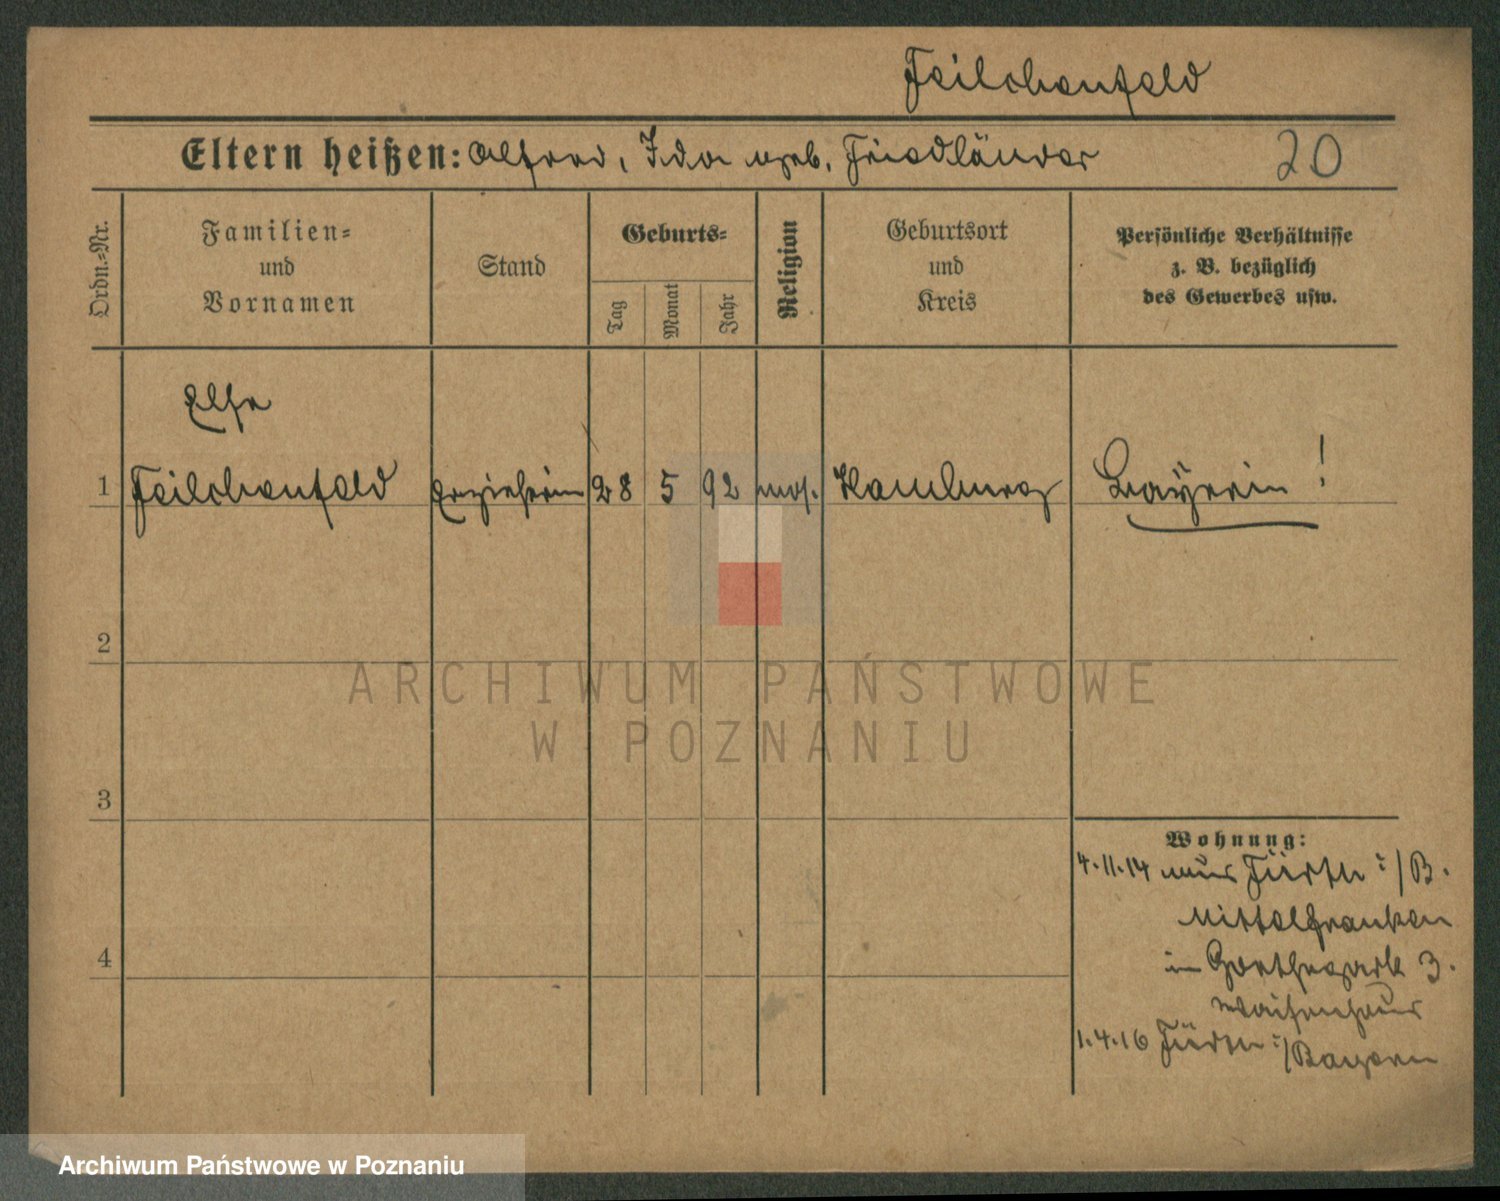 Feilchenfeld
Eltern heißen: Alfred, Ida geb. Friedländer
20
Ordn.-Nr.
Familien-
und
Vornamen
Stand
Geburts-
Tag
Monat
Jahr
Religion
Geburtsort
und
Kreis
Persönliche Verhältnisse
z. B. bezüglich
des Gewerbes usw.
Else
1 Feilchenfeld Erzieherin 28 5 92 mos. Hamburg Bayerin !
2
3
4
Wohnung:
4.11.14 aus Fürth i/B.
Mittelfranken
in Goethepark 3.
Waisenhaus
1.4.16 Fürth i/Bayern
ARCHIWUM PAŃSTWOWE
W POZNANIU
Archiwum Państwowe w Poznaniu